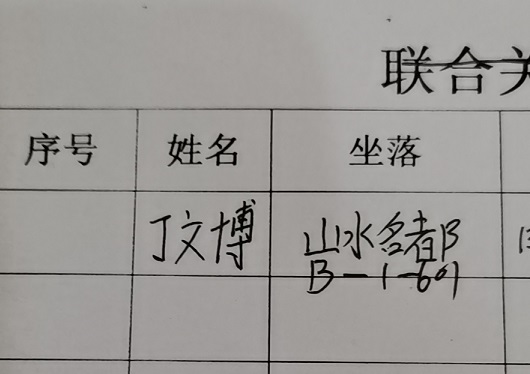 联合关
序号 姓名 坐落
丁文博 山水名都B
B-1-601